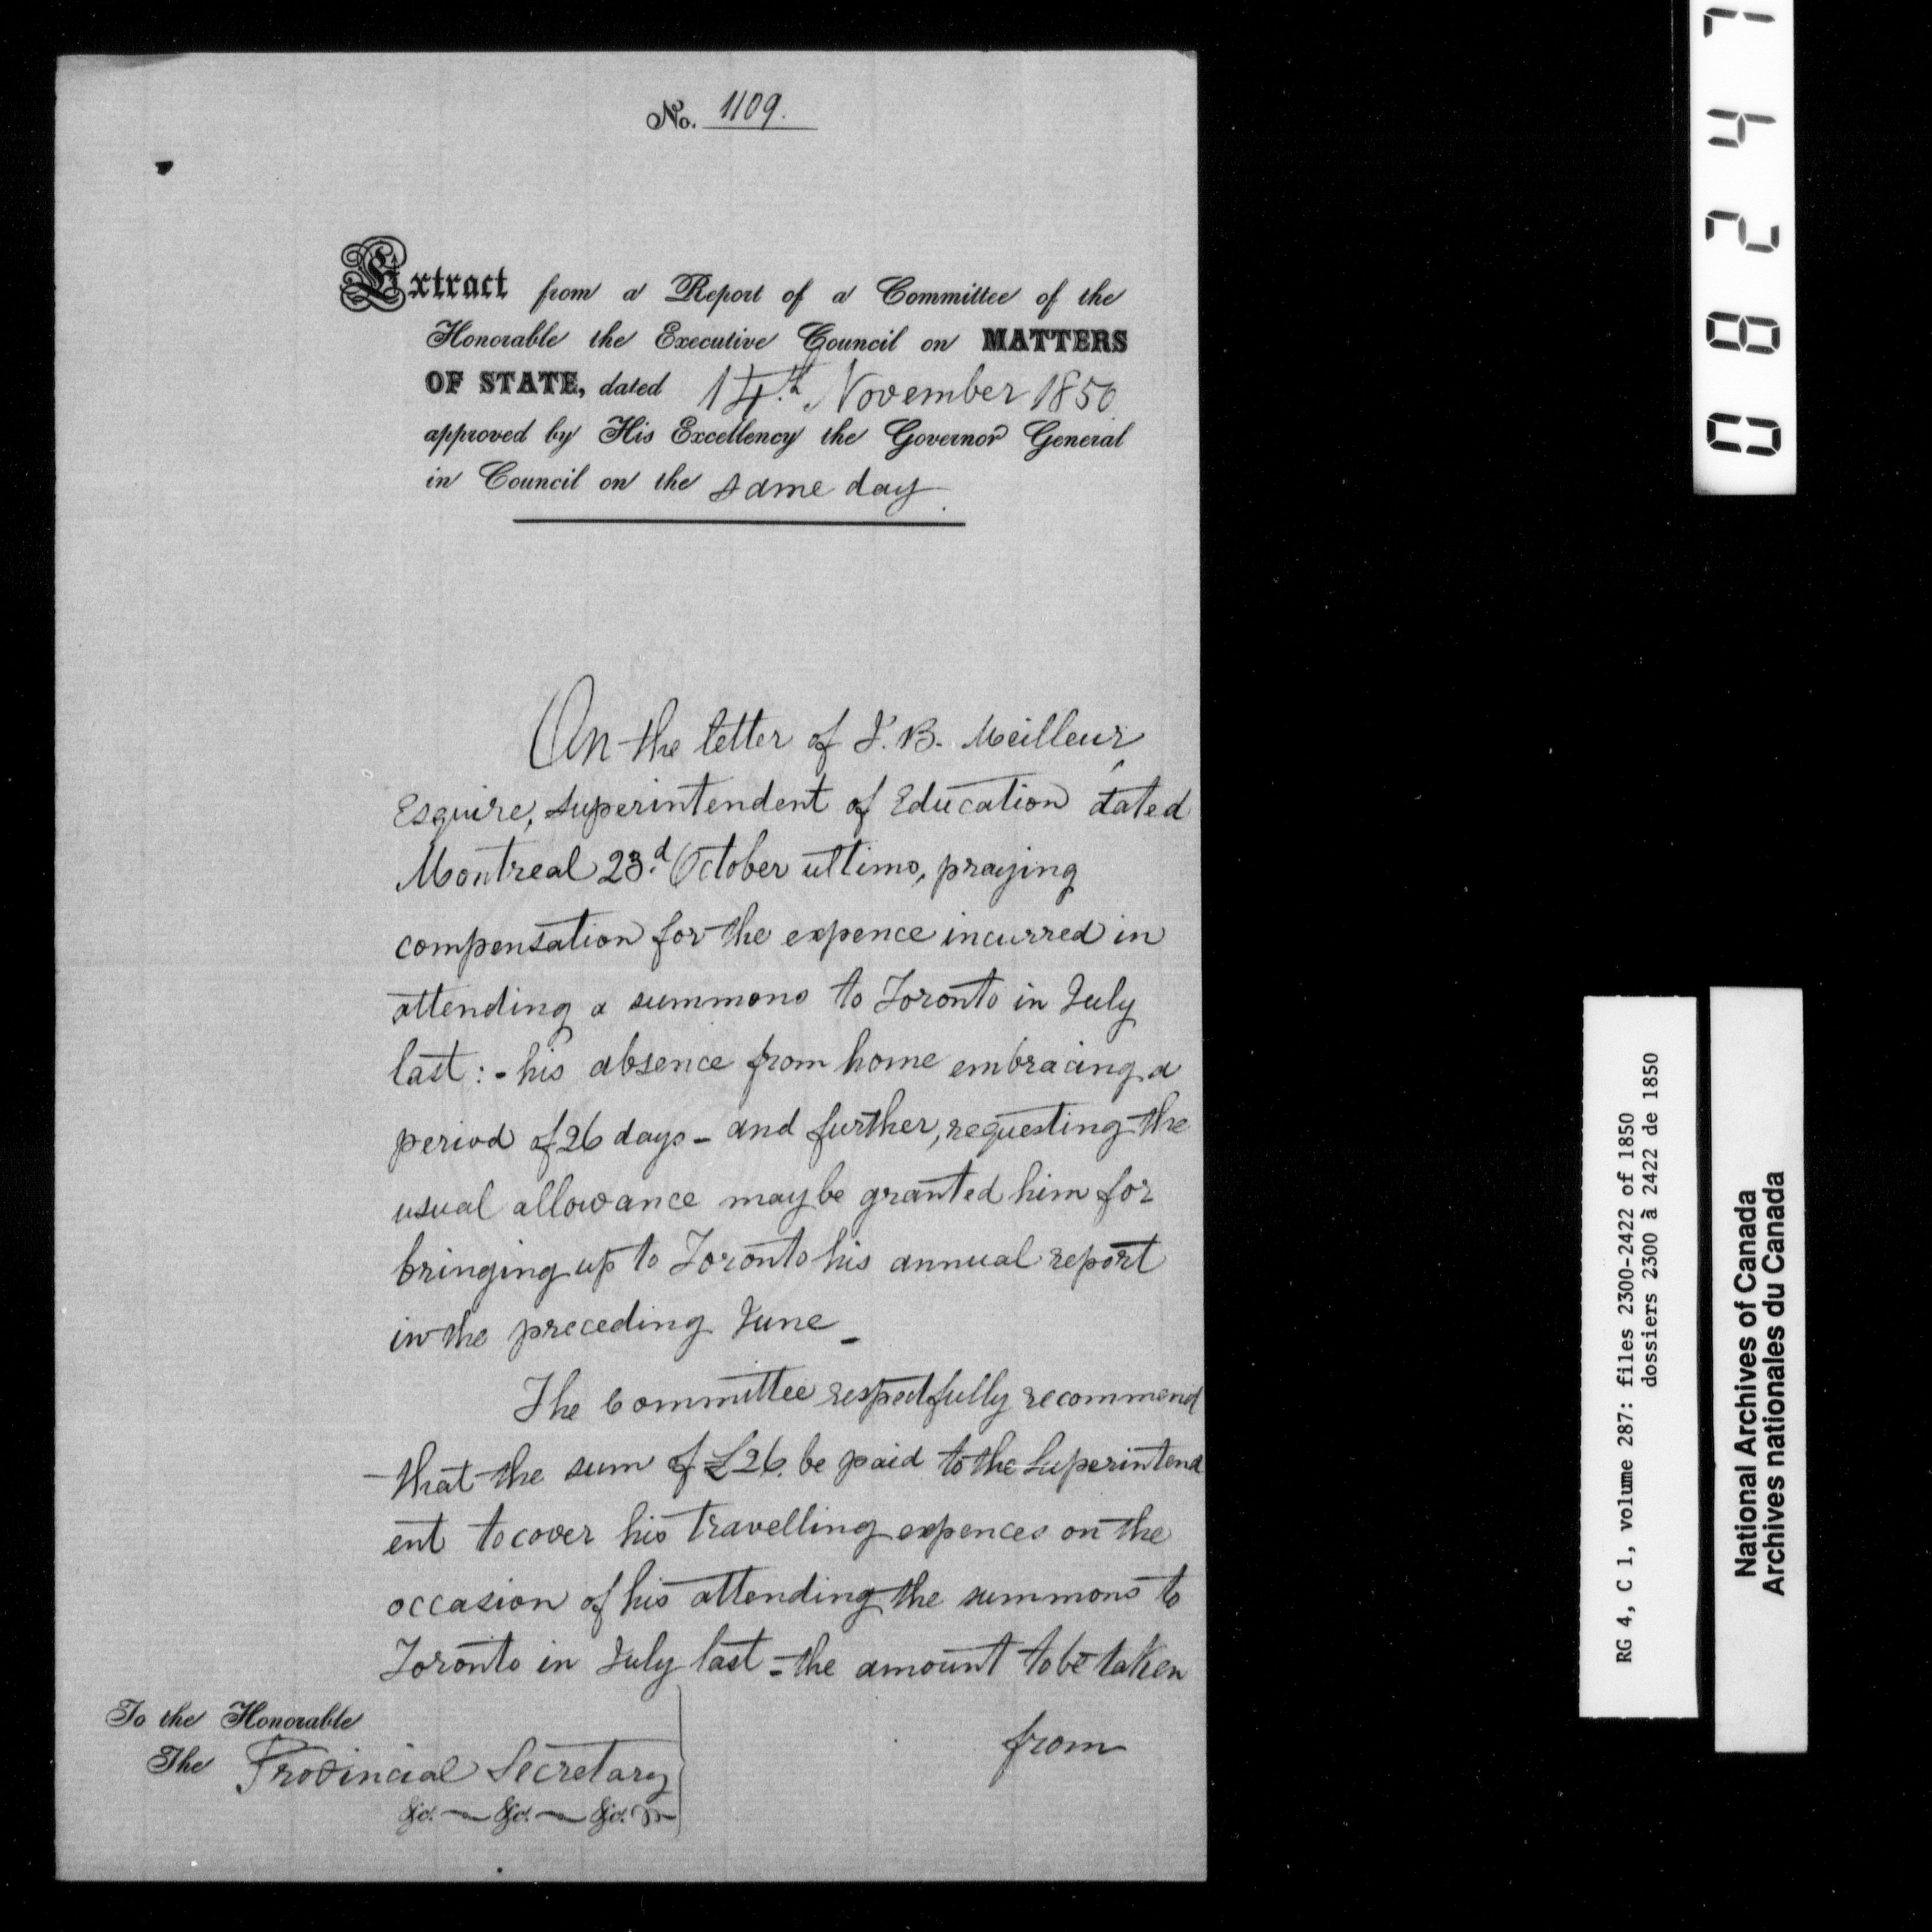 No. 1109.
Extract from a Report of a Committee of the
Honorable the Executive Council on MATTERS
OF STATE, dated 14th November 1850
approved by His Excellency the Governor General
in Council on the same day.
On the letter of J. B. Meilleur,
Esquire, Superintendent of Education dated
Montreal 23d October ultimo, praying
compensation for the expence incurred in
attending a summons to Toronto in July
last:- his absence from home embracing a
period of 26 days - and further, requesting the
usual allowance may be granted him for
bringing up to Toronto his annual report
in the preceding June -
The Committee respectfully recommend
that the sum of £26. be paid to the Superintend
ent to cover his travelling expences on the
occasion of his attending the summons to
Toronto in July last - the amount to be taken
from
To the Honorable
The Provincial Secretary
&c. &c. &c.
08247
RG 4, C 1, volume 287: files 2300-2422 of 1850
dossiers 2300 à 2422 de 1850
National Archives of Canada
Archives nationales du Canada